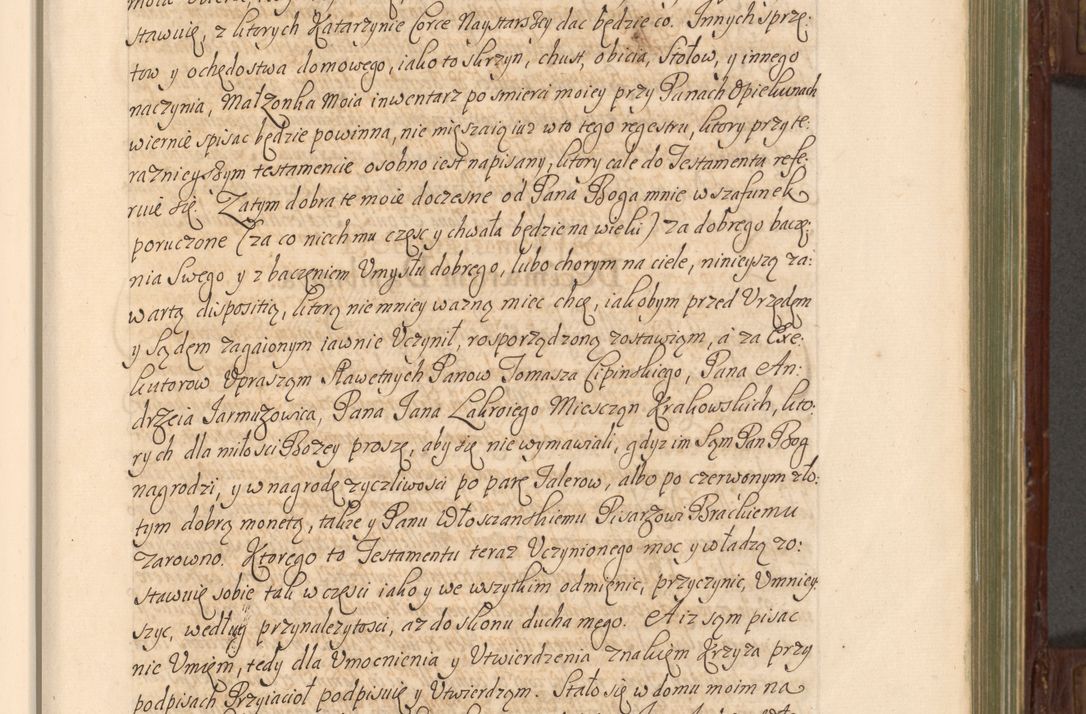 stawuię, z ktorych Katarzynie Corce Naystarszey dac będzie co. Innych sprzę:
tow y ochędostwa domowego, iako to skrzyn, chust, obicia, stołow, y innego
naczynia, Małzonka Moia inwentarz po smierci moiey przy Panach Opiekunach
wiernie spisac będzie powinna, nie mięszaiąc iuz w to tego regestru, ktory przy te:
raznieyszym testamencie osobno iest napisany, ktory cale do Testamentu refe:
ruie się. Zatym dobra te moie doczesne od Pana Boga mnie w szafunek
poruczone (za co niech mu częsc y chwała będzie na wieki) za dobrego bacze:
nia swego y z baczeniem Umysłu dobrego, lubo chorym na ciele, ninieyszą za:
wartą dispositią, ktorą nie mniey wazną miec chcę, iakobym przed Urzędem
y Sądem zagaionym iawnie Uczynił, rosporządzoną zostawiam, a za Exe:
kutorow Upraszam Sławetnych Panow Tomasza Lipinskiego, Pana An:
drzeia Jarmuzowica, Pana Jana Lakroiego Miesczan Krakowskich, kto:
rych dla miłosci Bozey proszę, aby się nie wymawiali, gdyz im sąm Pan Bog
nagrodzi, y w nagrodę zyczliwosci po parę Talerow, albo po czerwonym zło:
tym dobrą monetą, takze y Panu Włosczanskiemu Pisarzowi Brackiemu
zarowno. Ktorego to Testamentu teraz Uczynionego moc y władzą zo:
stawuię sobie tak w częsci iako y we wszytkim odmienic, przyczynic, Umniey:
szyc, według przynalezytosci, az do skonu ducha mego. A iz sąm pisac
nie Umiem, tedy dla Umocnienia y Utwierdzenia znakiem Krzyza przy
podpisach Przyiacioł podpisuię y Utwierdzam. Stało się w domu moim na